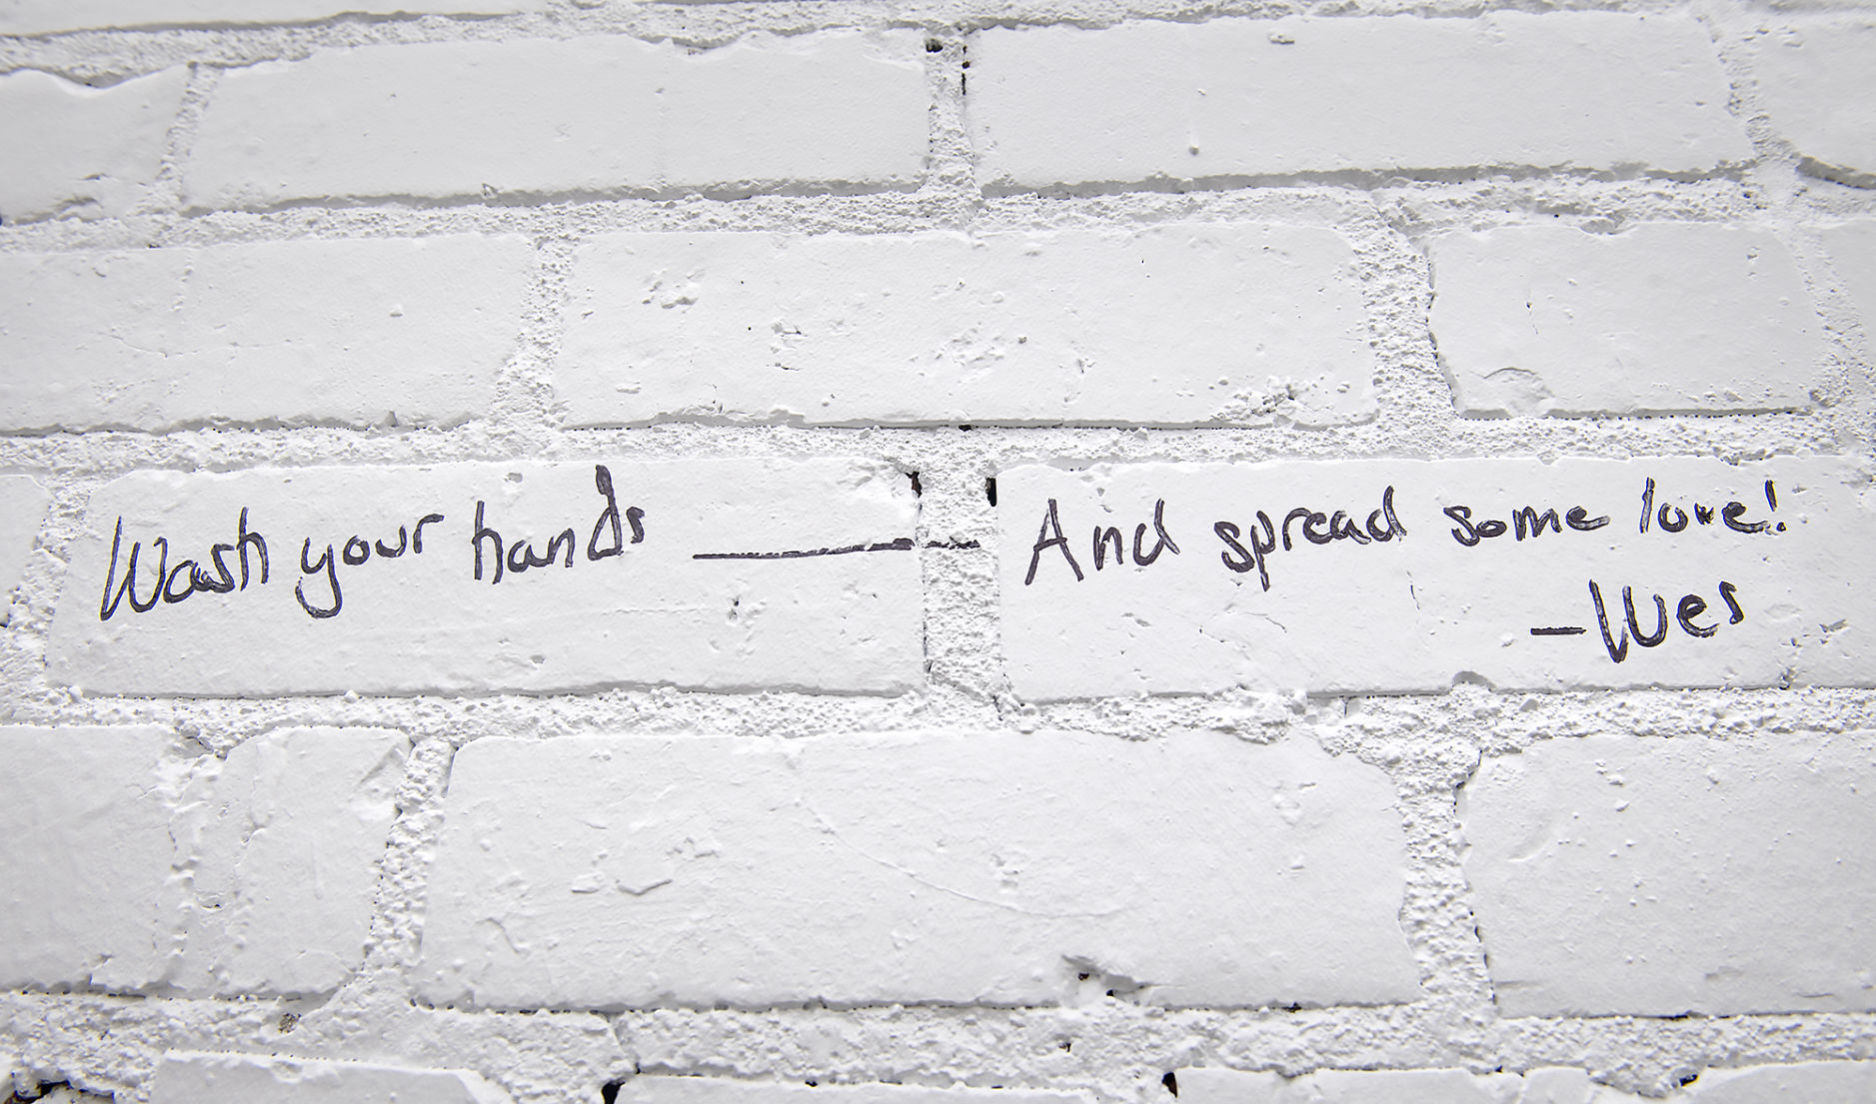 Wash your hands — And spread some love!
-Wes